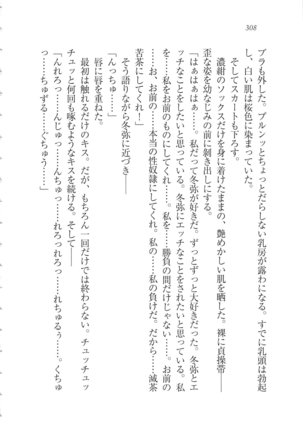 308
ブラも外した。ブルンッとちょっとだらしない乳房が露わになる。すでに乳頭は勃起
し、白い肌は桜色に染まっていた。
そしてスカートも下ろす。
濃紺のソックスだけを身に着けたままの、艶めかしい肌を晒した。裸に貞操帯――
歪な姿を幼なじみの前に剝き出しにする。
「はぁはぁはぁ……。私だって冬弥が好きだ。ずっとずっと大好きだった。冬弥とエ
ッチなことがしたいと思っている。冬弥にエッチなことをしたいと思っている。私
を……私をお前のものにしてくれ……。勝負の間だけじゃない。これからもずっ
と……お、お前の……本当の性奴隷にしてくれ。私の……私の負けだ。だから……滅茶
苦茶にしてくれ！」
そう語りながら冬弥に近づき――
「んっちゅ……」
唇に唇を重ねた。
最初は触れるだけのキス。だが、もちろん一回だけでは終わらない。チュッチュッ
チュッと何回も啄むようなキスを続ける。そして――
「んれろっ……んじゅっ……んちゅっ……れろっれろっ……れちゅるぅ……。くちゅ
う……ちゅずる……ぐちゅう……」